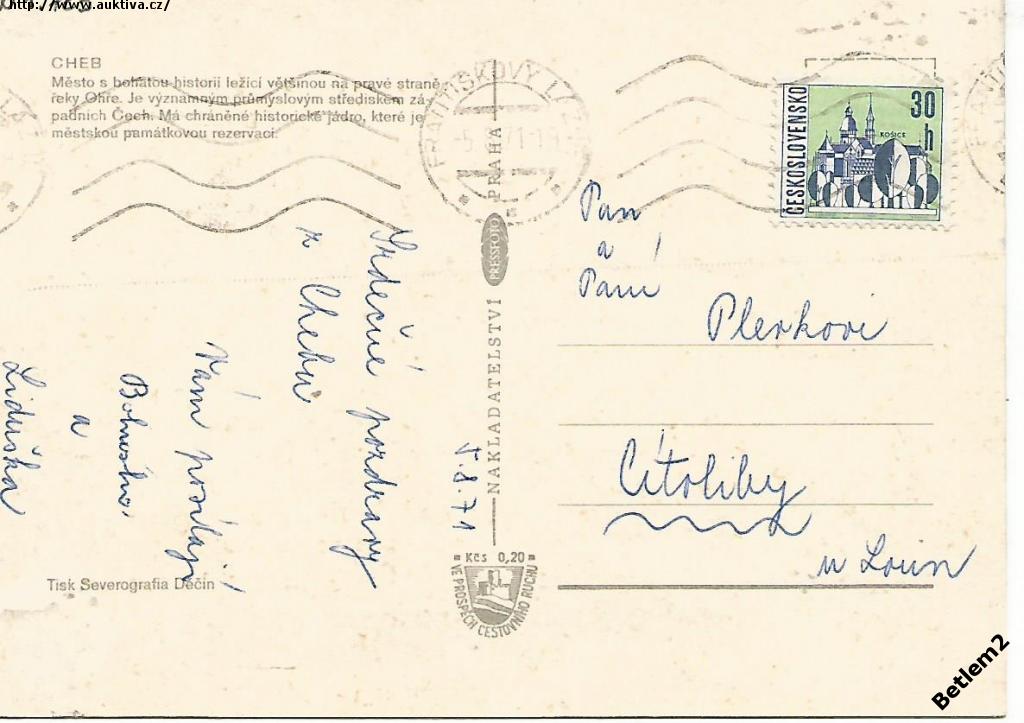 http://www.auktiva.cz/
CHEB
Město s bohatou historií ležící většinou na pravé straně
řeky Ohře. Je významným průmyslovým střediskem zá-
padních Čech. Má chráněné historické jádro, které je
městskou památkovou rezervací.
Srdečné pozdravy
z Chebu
Vám posílají
a
Liduška
5.8.71
Tisk Severografia Děčín
FRANTIŠKOVY LÁ
-5.8.71-19
NAKLADATELSTVÍ PRESSFOTO PRAHA
Kčs 0,20
VE PROSPĚCH CESTOVNÍHO RUCHU
ČESKOSLOVENSKO
30
h
KOŠICE
Pan
a
Paní
Plerkovi
Cítoliby
u Loun
Betlem2